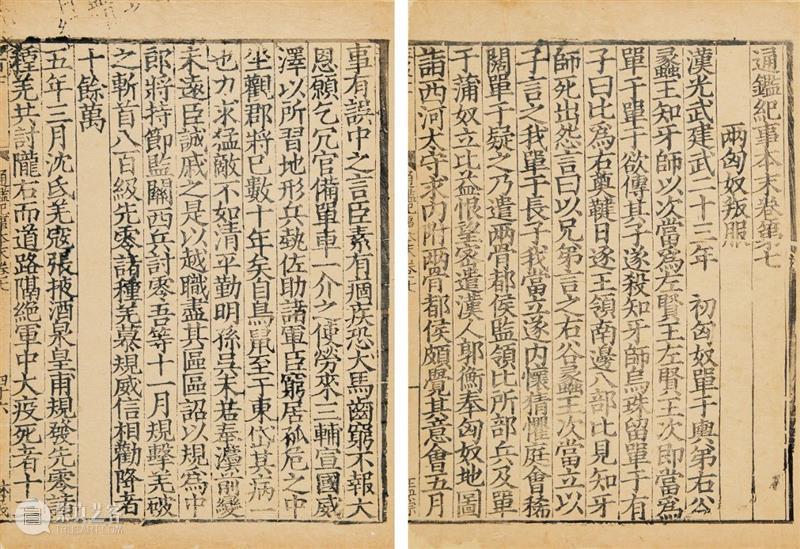 通鑑紀事本末卷第七
兩匈奴叛服
漢光武建武二十三年 初匈奴單于輿弟右谷
蠡王知牙師以次當爲左賢王左賢王次即當爲
單于單于欲傳其子遂殺知牙師烏珠留單于有
子曰比爲右薁鞬日逐王領南邊八部比見知牙
師死出怨言曰以兄弟言之右谷蠡王次當立以
子言之我單于長子我當立遂内懷猜懼庭會稀
闊單于疑之乃遣兩骨都侯監領比所部兵及單
于蒲奴立比益恨望密遣漢人郭衡奉匈奴地圖
詣西河太守求内附兩骨都侯頗覺其意會五月
事有誤中之言臣素有痼疾恐犬馬齒窮不報大
恩願乞冗官備單車一介之使勞來三輔宣國威
澤以所習地形兵埶佐助諸軍臣窮居孤危之中
坐觀郡將已數十年矣自鳥鼠至于東岱其病一
也力求猛敵不如清平勤明孫吳未若奉灋前變
未遠臣誠戚之是以越職盡其區區詔以規爲中
郎將持節監關西兵討零吾等十一月規擊羌破
之斬首八百級先零諸種羌慕規威信相勸降者
十餘萬
五年三月沈氏羌寇張掖酒泉皇甫規發先零諸
種羌共討隴右而道路隔絕軍中大疫死者十
四十六